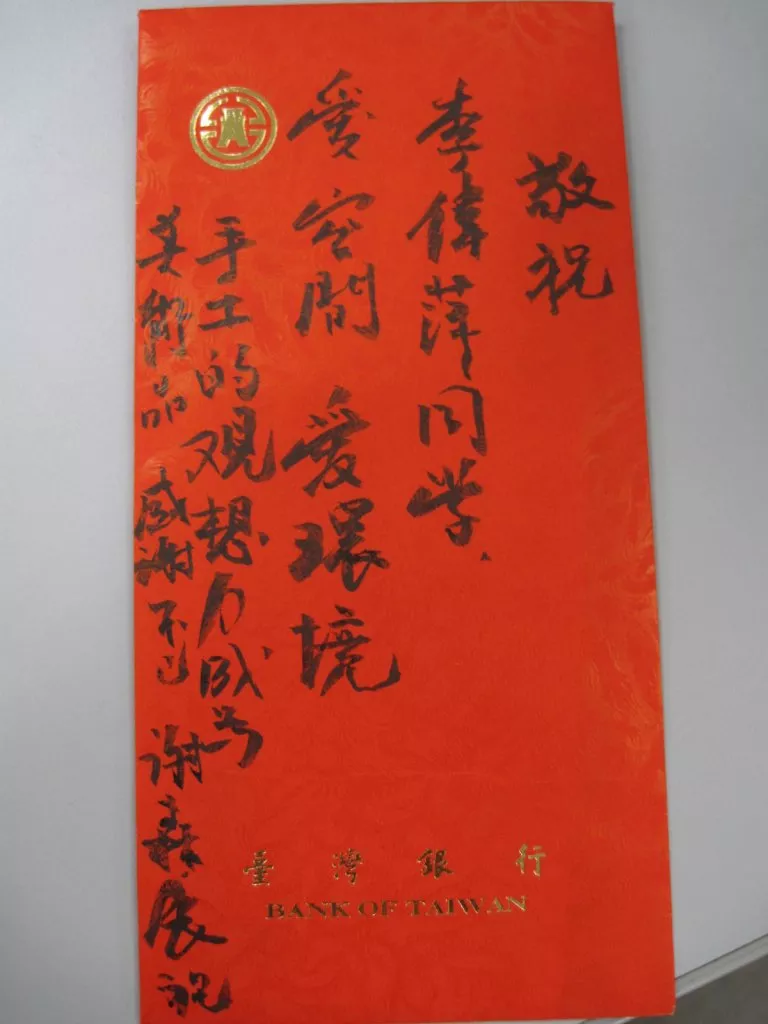 敬祝
李偉萍同学、
爱空間 爱環境
手工的观想力成为
美術品 感謝不已 谢森展祝
臺灣銀行
BANK OF TAIWAN